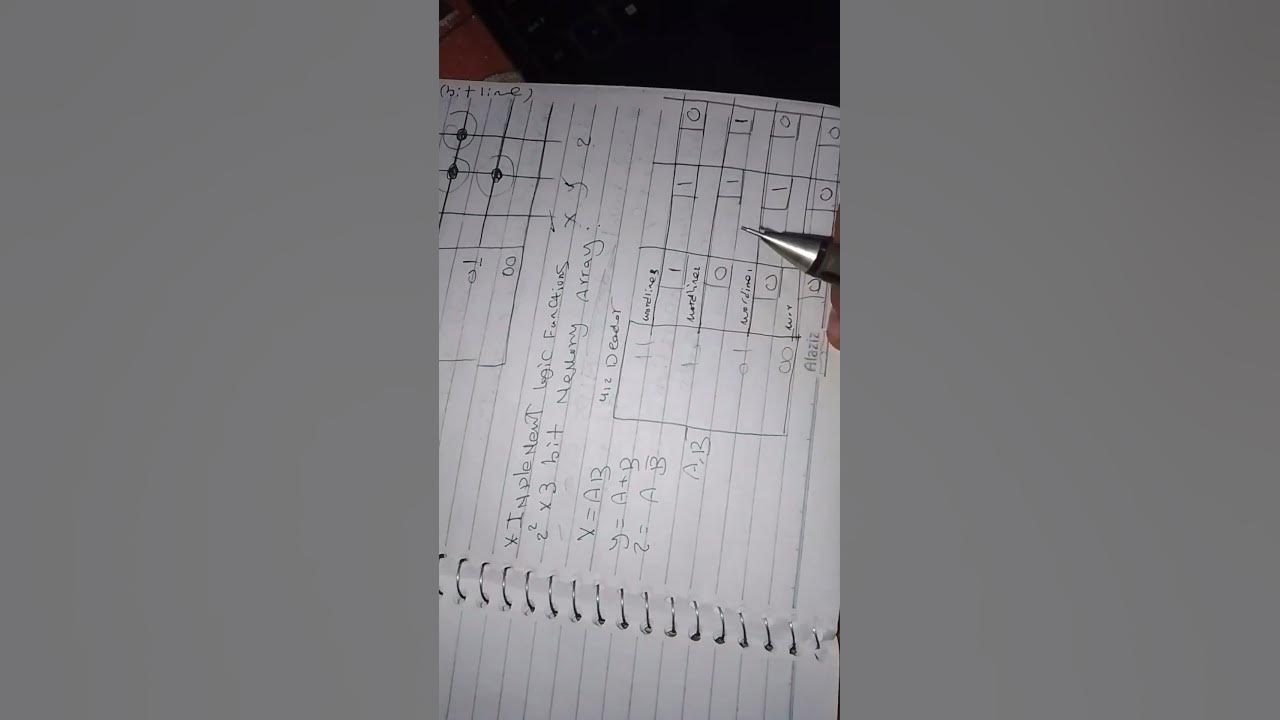 (bitline)
01
00
* INPleMeNT logic Functions
2² x 3 bit MeMory Array:
X = AB
y = A + B
Z = A B̅
X y Z
4:2 Decador
A,B
11 wordline3 1 1 0
10 wordline2 0 1 1
01 wordline1 0 1 0
00 wor 0 0 0
Alaziz